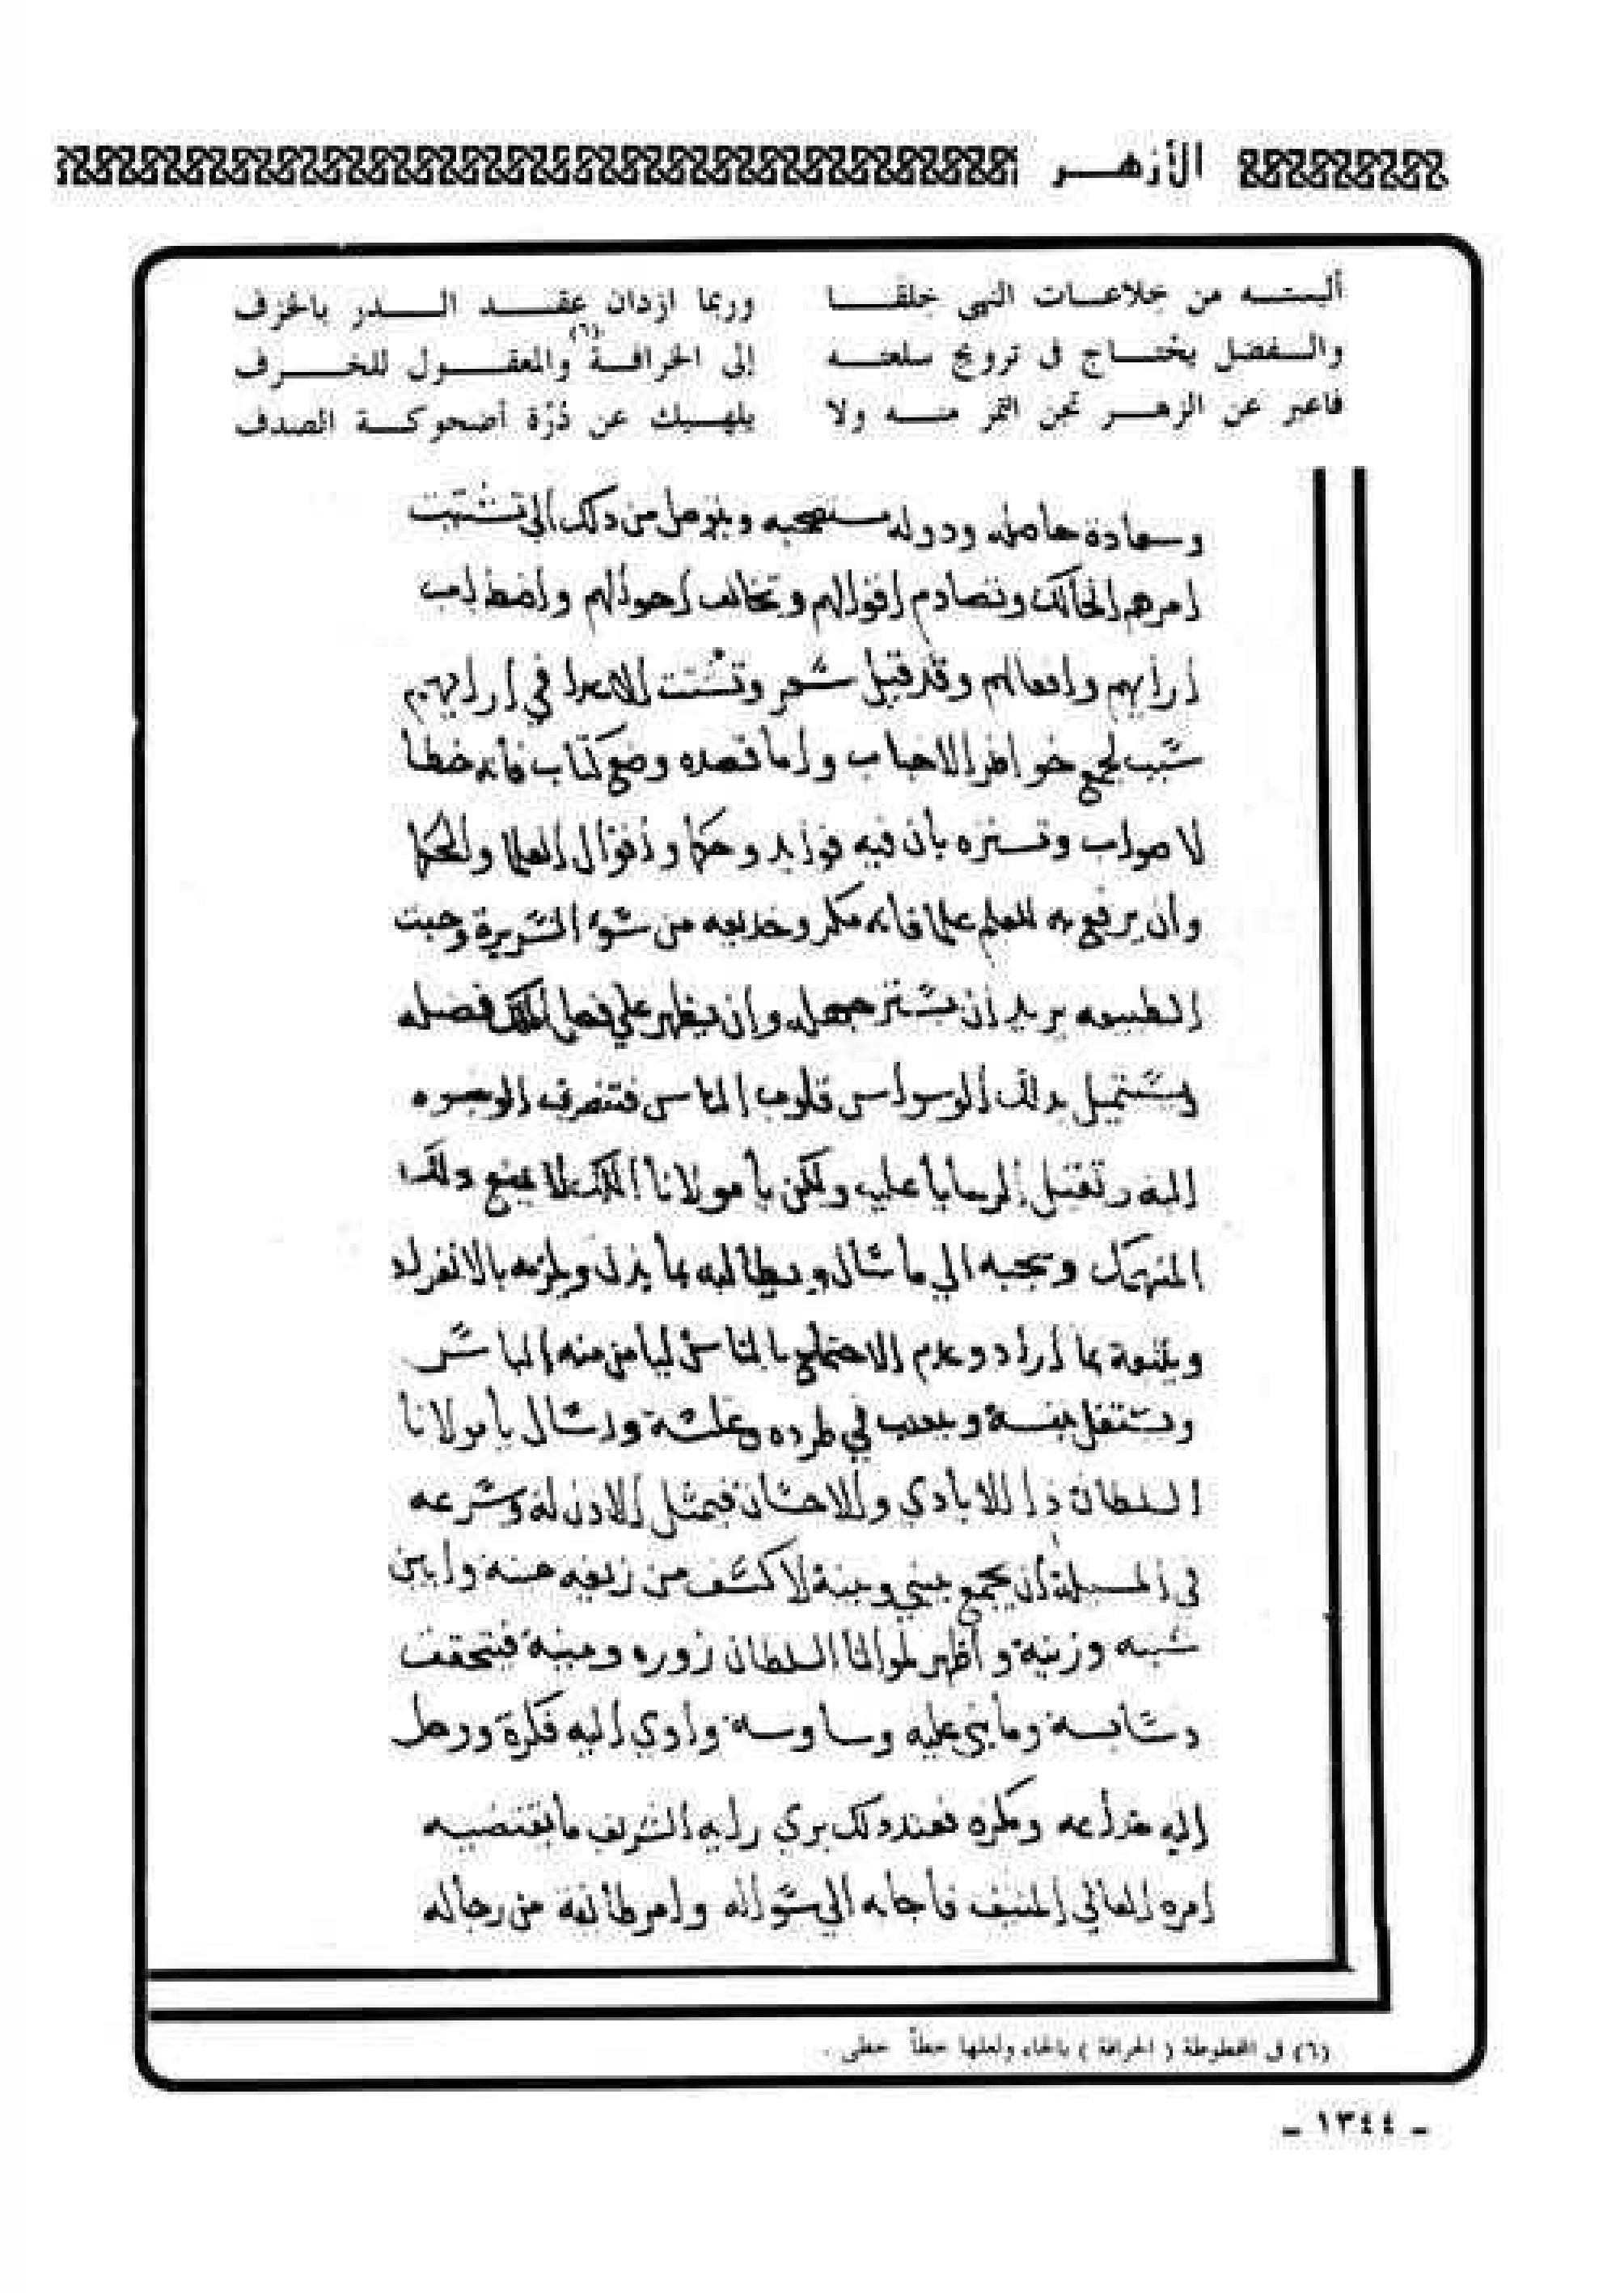 الأزهـــر
ألبستـــه من خلاعـــات النهى خلقـــا وربما ازدان عقـــد الـــدر بالخزف
والـــفضل يحتـــاج فى ترويج سلعتـــه إلى الخرافـــة(٦) والمعقـــول للخـــرف
فاعبر عن الزهـــر تجن التمر منـــه ولا يلهـــيك عن دُرّة أضحوكـــة الصدف
وسعادة حاصله ودوله مستصحبه ويتوصل من ذلك الى تشتيت
امرهم الحالك وتصادم اقوالهم وتخالف احوالهم واضطراب
ارايهم وافعالهم وقد قيل شعر وتشتت الاعدا في ارايهم
سبب لجمع خواطر الاحباب واما قصده وضع كتاب فانه خطا
لا صواب وتستره بان فيه فوايد وحكما واقوال العلما والحكما
وان يرفع به للعلم علما فانه مكر وخديعه من سوء السريرة وخبث
الطبيعه يريد ان يستر جهله وان يظهر علي فضل الملك فضله
ليستميل بذلك الوسواس قلوب الناس فتنصرف الوجوه
اليه وتقبل الرعايا عليه ولكن يا مولانا الملك لا تمنع ذلك
المنهمك وتجيبه الي ما سال ويطالبه بما بذل ويلزمه بالانفراد
بما اراد وعدم الاجتماع بالناس ليامن منه الباس
ويشتغل بنفسه في طرده وعكسه ونسال يا مولانا
السلطان ذا الايادي والاحسان الاذن له وشرعه
في المسيلة ان يجمع بيني وبينه لاكشف من زيفه عينه وابين
شينه وزينه واظهر لمولانا السلطان زوره ومينه فيتحقق
دسايسه وما بنى عليه وساوسه واوي اليه فكره ووصل
اليه خداعه ومكره فعند ذلك يري رايه الشريف ما يقتضيه
امره العالي المنيف فاجابه الي سواله وامر طائفة من رجاله
(٦) فى المخطوطة ( الحرافة ) بالحاء ولعلها خطأ خطى .
ـ ١٣٤٤ ـ